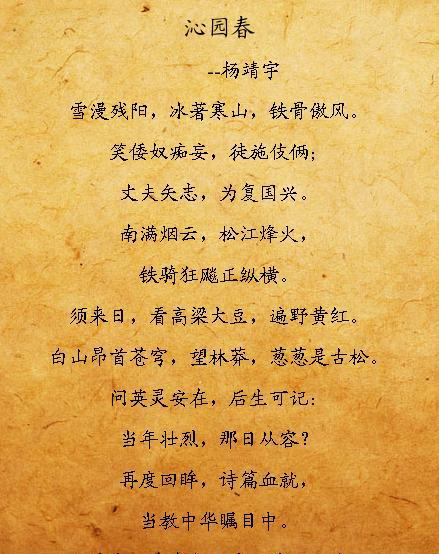 沁园春
--杨靖宇
雪漫残阳，冰著寒山，铁骨傲风。
笑倭奴痴妄，徒施伎俩;
丈夫矢志，为复国兴。
南满烟云，松江烽火，
铁骑狂飚正纵横。
须来日，看高梁大豆，遍野黄红。
白山昂首苍穹，望林莽，葱葱是古松。
问英灵安在，后生可记:
当年壮烈，那日从容？
再度回眸，诗篇血就，
当教中华瞩目中。